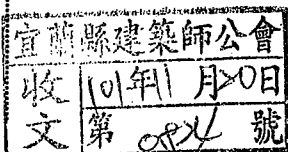 宜蘭縣建築師公會
收文 101年11月20日
第 0824 號